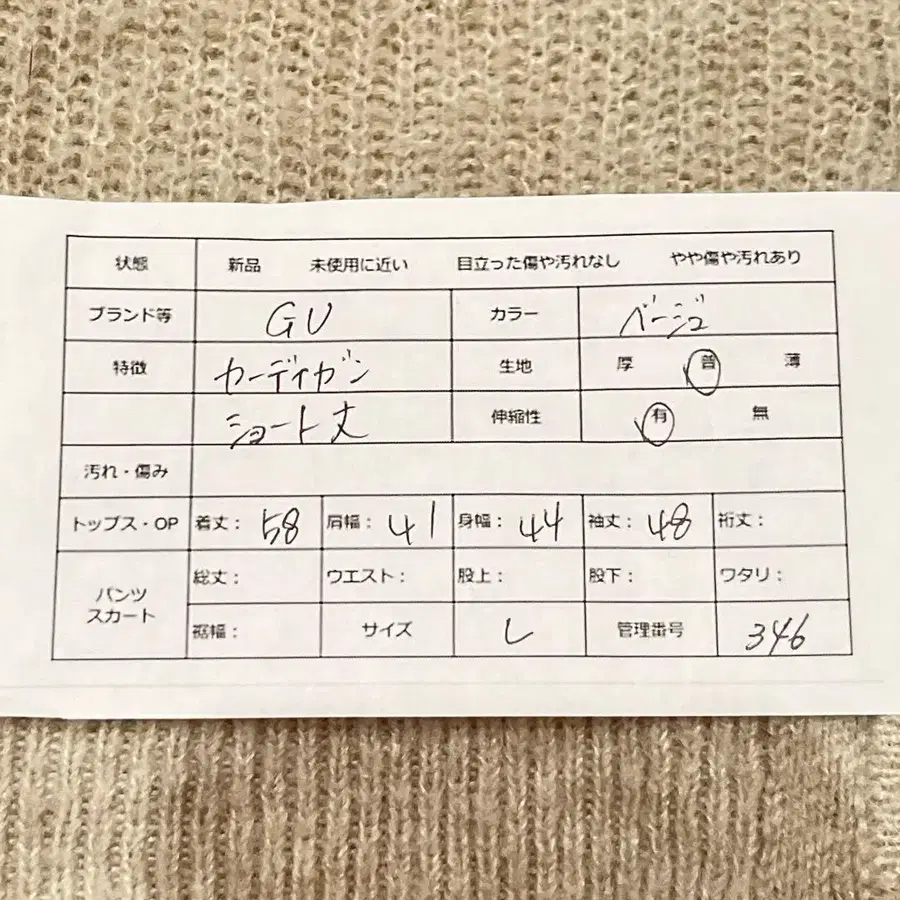 状態 新品 未使用に近い 目立った傷や汚れなし やや傷や汚れあり
ブランド等 GU カラー ベージュ
特徴 カーディガン 生地 厚 普 薄
ショート丈 伸縮性 有 無
汚れ・傷み
トップス・OP 着丈: 58 肩幅: 41 身幅: 44 袖丈: 48 裄丈:
パンツ スカート 総丈: ウエスト: 股上: 股下: ワタリ:
裾幅: サイズ L 管理番号 346